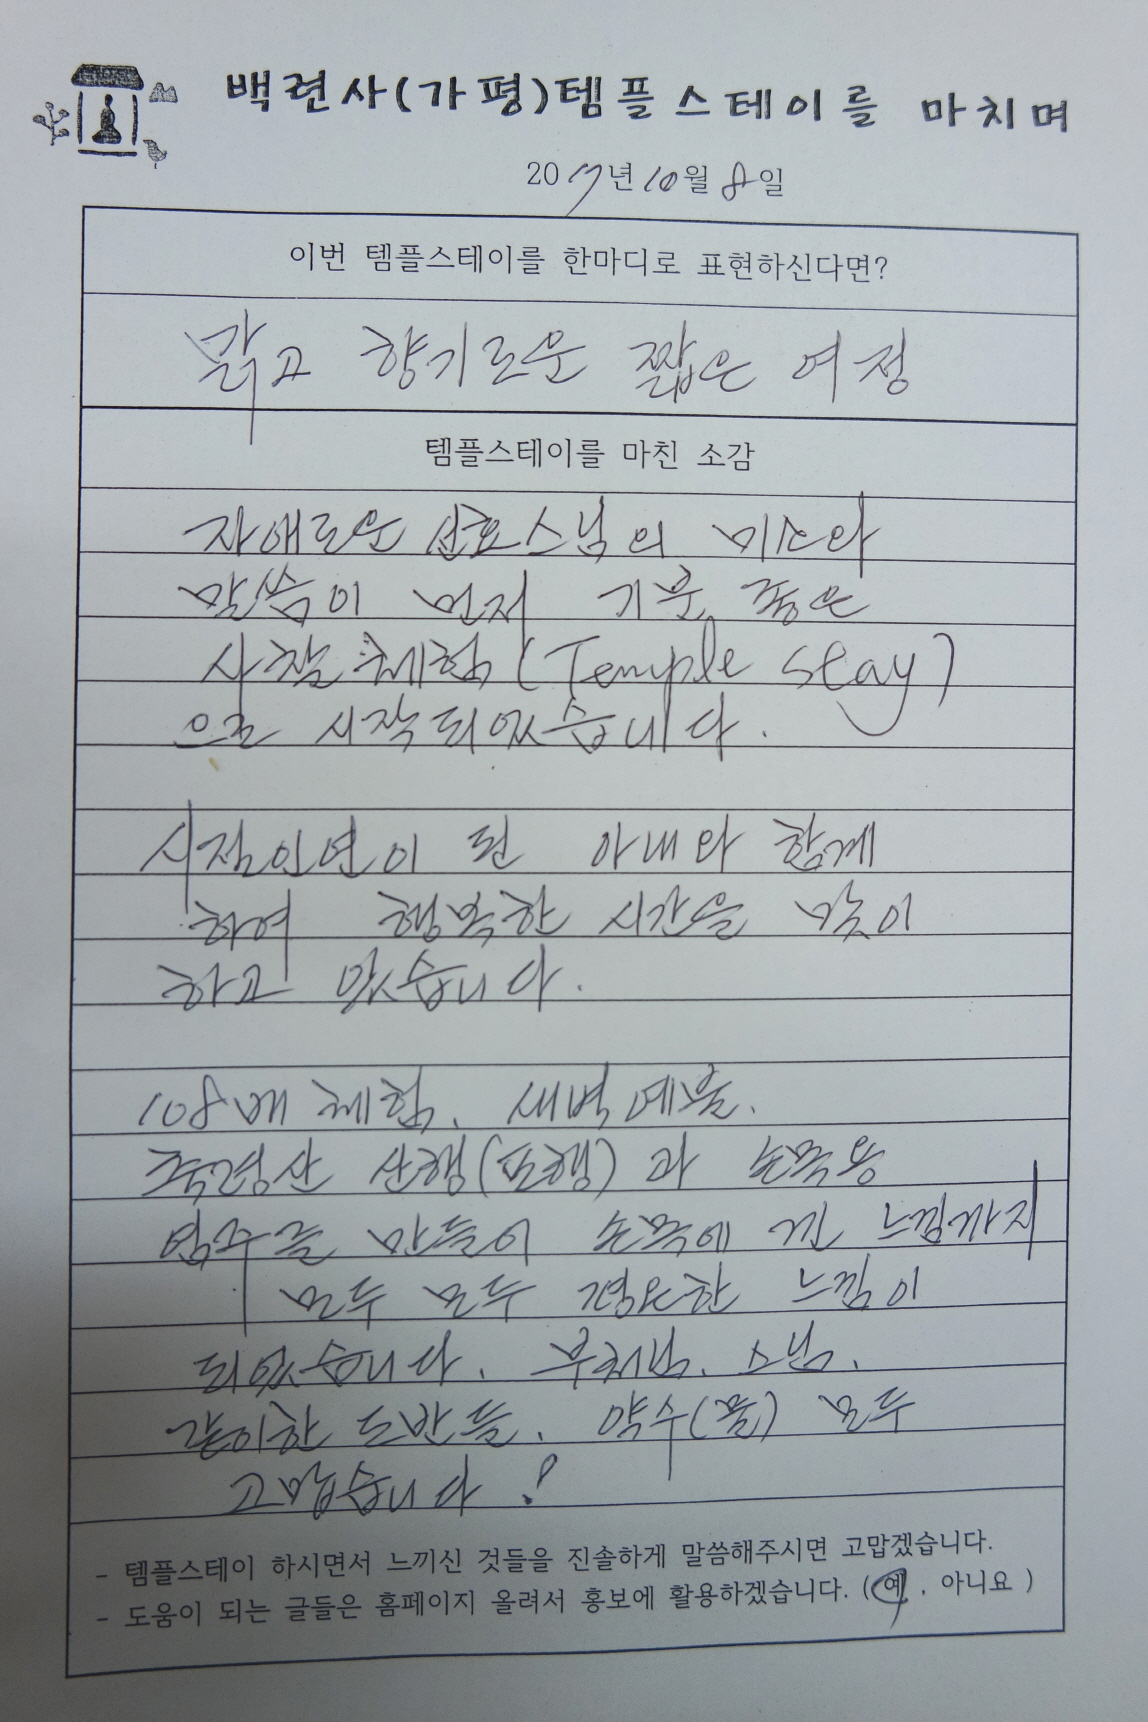 백련사(가평)템플스테이를 마치며
2017년 10월 8일
이번 템플스테이를 한마디로 표현하신다면?
맑고 향기로운 짧은 여정
템플스테이를 마친 소감
자애로운 선효스님의 미소와
말씀이 먼저 기분 좋은
사찰 체험(Temple stay)
으로 시작되었습니다.
시절인연이 된 아내와 함께
하여 행복한 시간을 맞이
하고 있습니다.
108배 체험, 새벽예불,
축령산 산행(포행)과 손목용
염주를 만들어 손목에 낀 느낌까지
모두 모두 평온한 느낌이
되었습니다. 부처님, 스님,
같이한 도반들, 약수(물) 모두
고맙습니다!
- 템플스테이 하시면서 느끼신 것들을 진솔하게 말씀해주시면 고맙겠습니다.
- 도움이 되는 글들은 홈페이지 올려서 홍보에 활용하겠습니다. (예, 아니요)